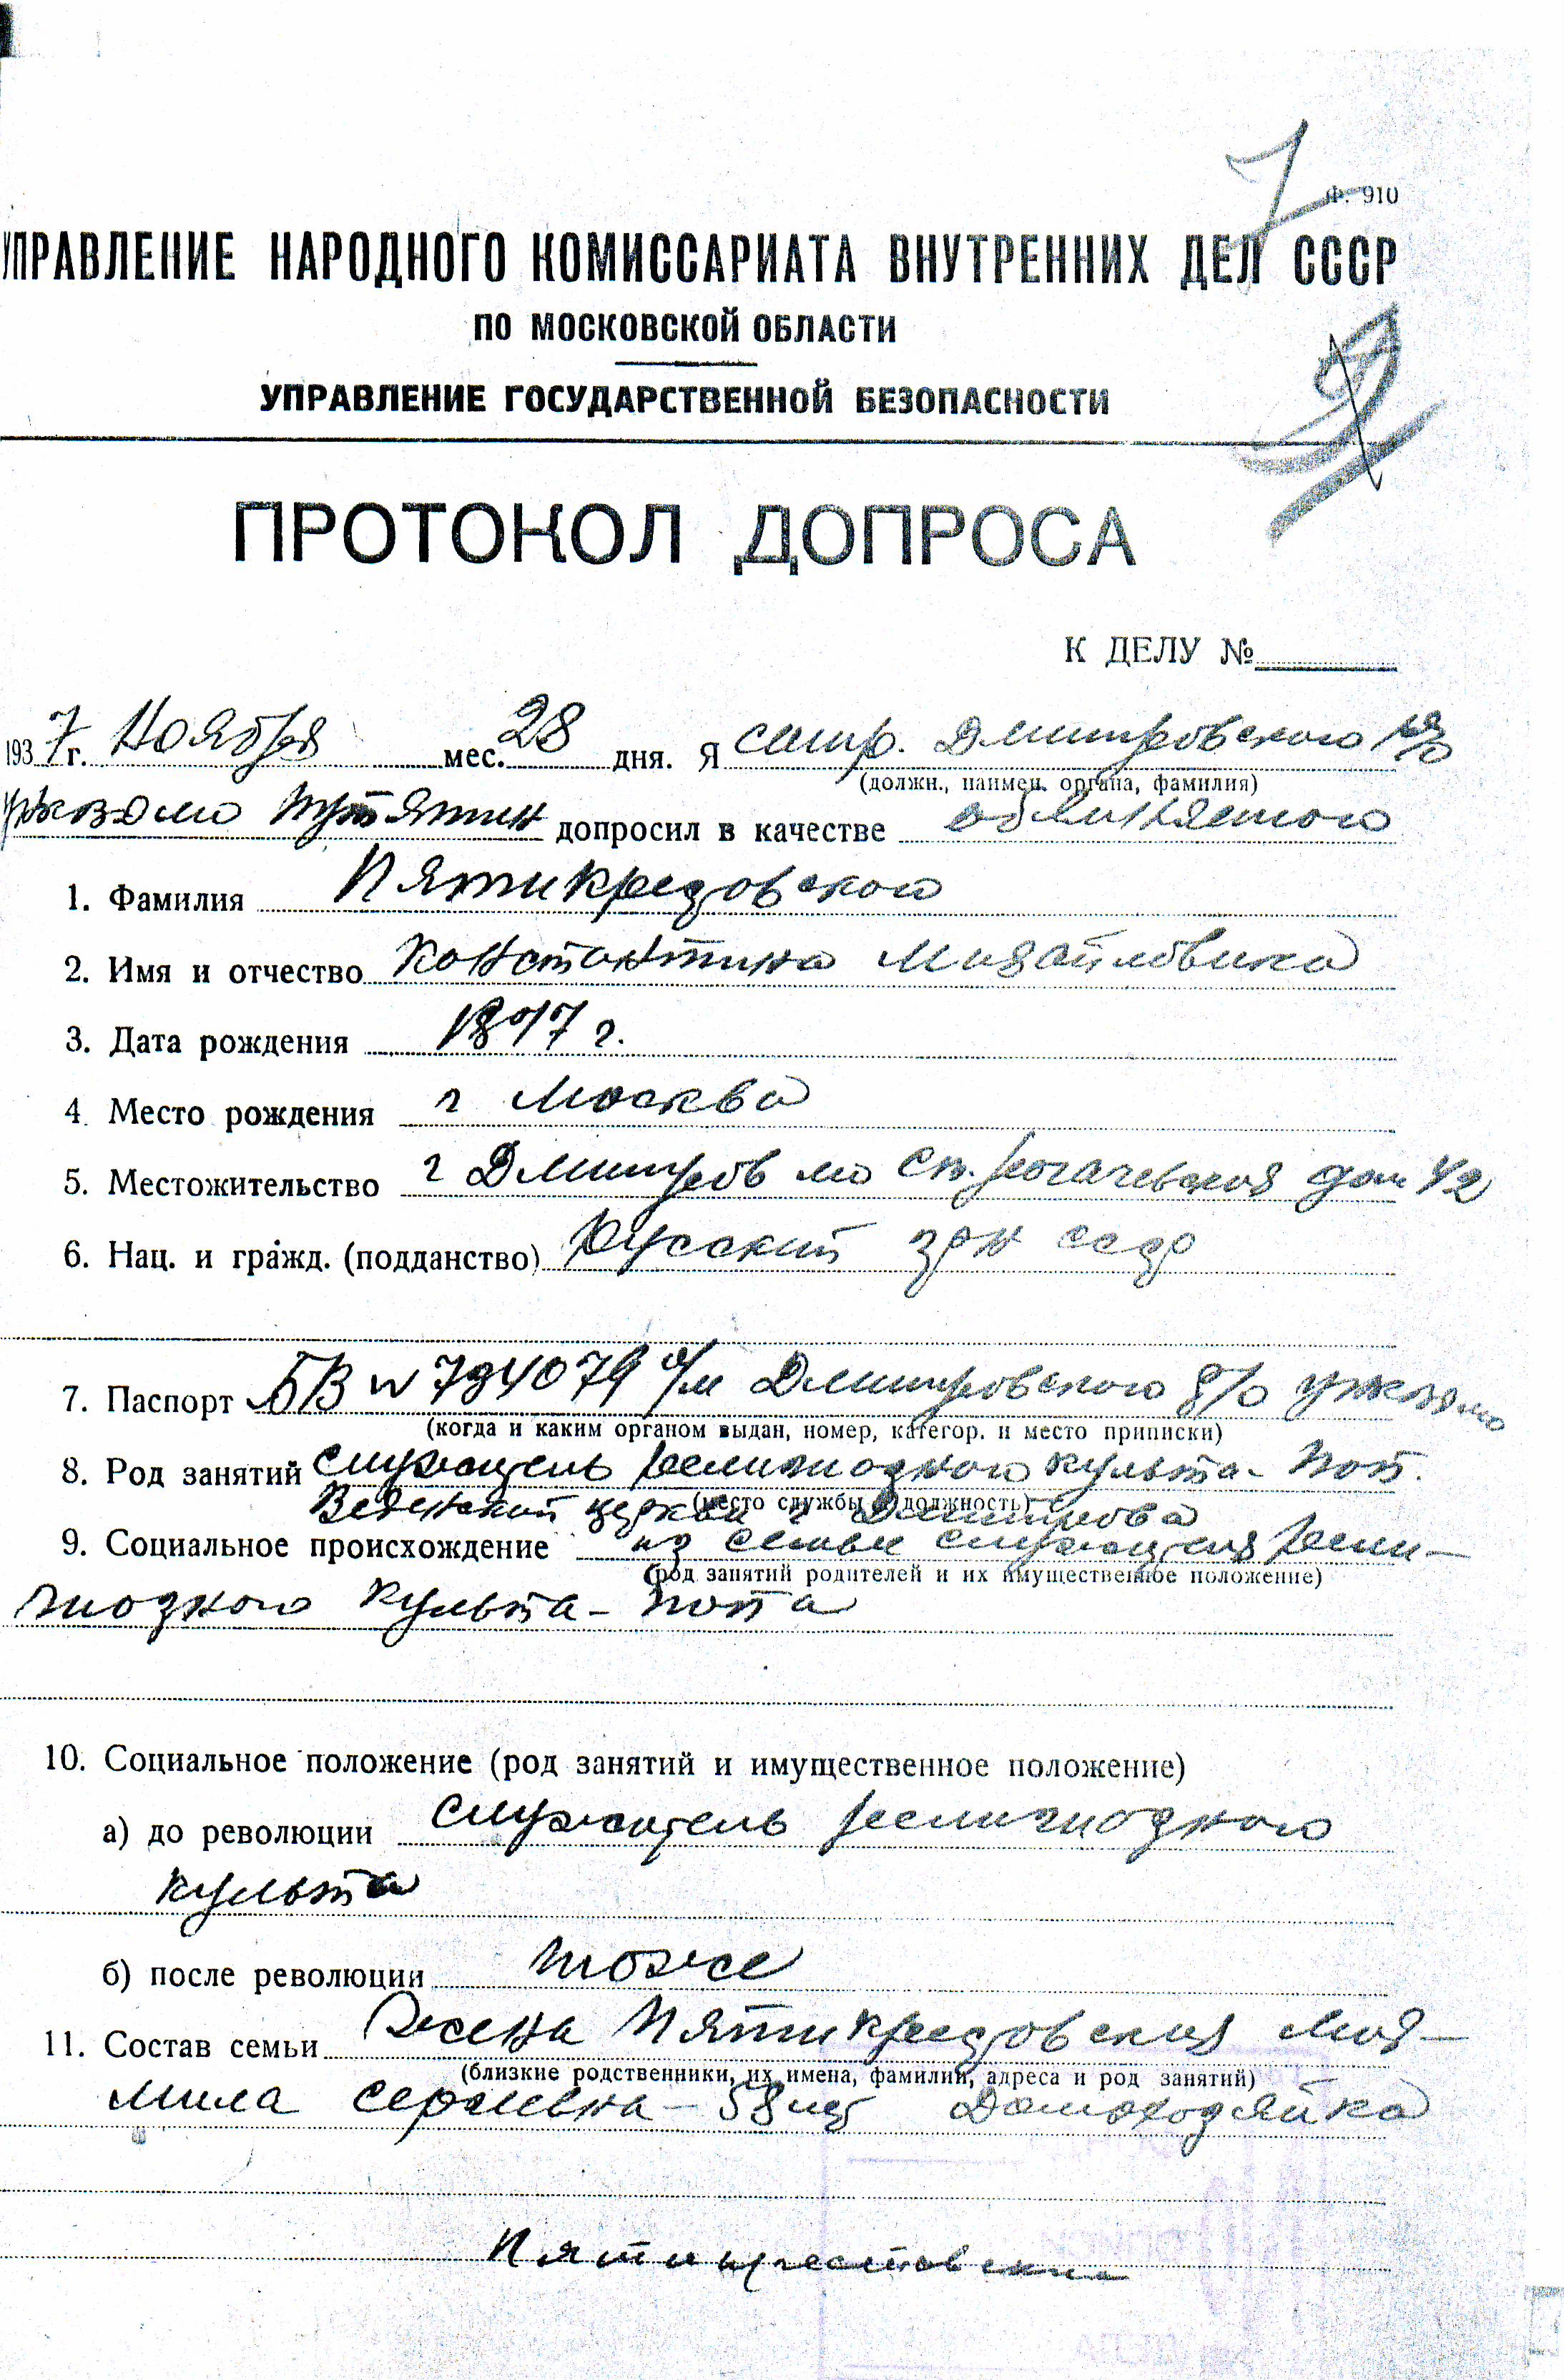 7
Ф. 910
УПРАВЛЕНИЕ НАРОДНОГО КОМИССАРИАТА ВНУТРЕННИХ ДЕЛ СССР
ПО МОСКОВСКОЙ ОБЛАСТИ
УПРАВЛЕНИЕ ГОСУДАРСТВЕННОЙ БЕЗОПАСНОСТИ
ПРОТОКОЛ ДОПРОСА
К ДЕЛУ №
1937 г. Ноября мес. 28 дня. Я сотр. Дмитровского р/о
(должн., наимен. органа, фамилия)
УНКВД МО допросил в качестве обвиняемого
1. Фамилия Пятикрестовского
2. Имя и отчество Константина Михайловича
3. Дата рождения 1877 г.
4. Место рождения г Москва
5. Местожительство г Дмитров мо ст. Рогачевская дом 42
6. Нац. и гражд. (подданство) Русский грн ссср
7. Паспорт БВ N 794079 Дмитровского р/о УНКВД МО
(когда и каким органом выдан, номер, категор. и место приписки)
8. Род занятий служитель религиозного культа - поп.
(место службы и должность)
Веденской церкви г Дмитрова
9. Социальное происхождение из семьи служителя рели-
(род занятий родителей и их имущественное положение)
гиозного культа - попа
10. Социальное положение (род занятий и имущественное положение)
а) до революции служитель религиозного
культа
б) после революции тоже
11. Состав семьи жена Пятикрестовская
(близкие родственники, их имена, фамилии, адреса и род занятий)
Сергеевна - 58 лет Домохозяйка
Пятикрестовский